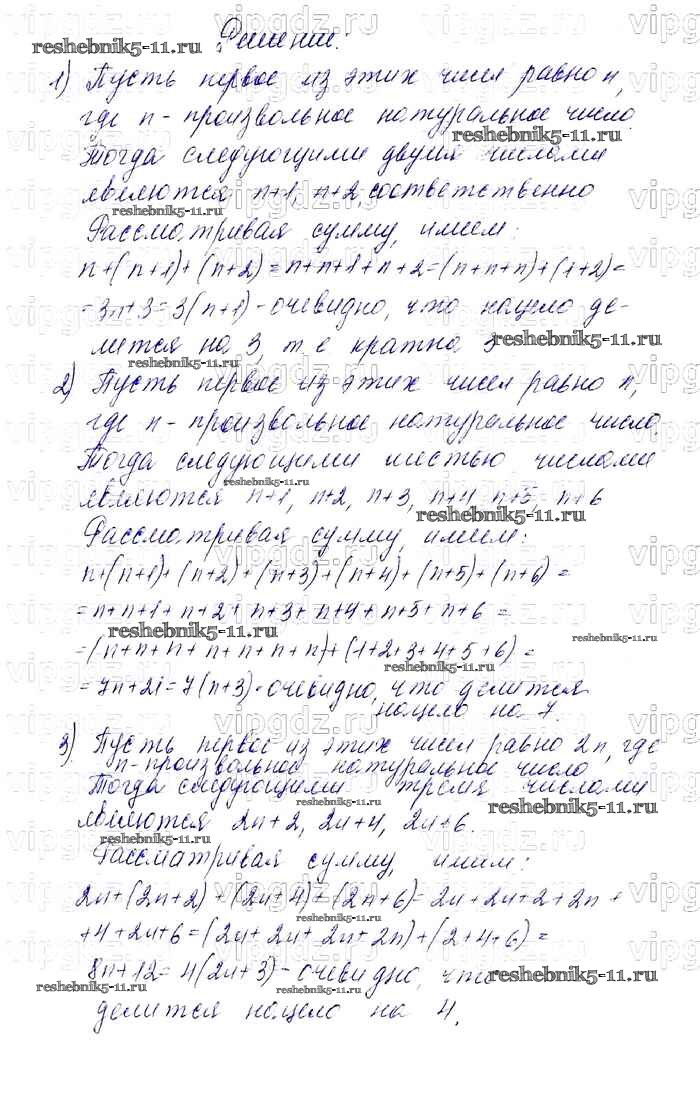 Решение:
1) Пусть первое из этих чисел равно n,
где n - произвольное натуральное число
Тогда следующими двумя числами
являются n+1, n+2, соответственно
Рассматривая сумму, имеем:
n+(n+1)+(n+2)=n+n+1+n+2=(n+n+n)+(1+2)=
=3n+3=3(n+1) - очевидно, что нацело де-
лится на 3, т е кратна 3
2) Пусть первое из этих чисел равно n,
где n - произвольное натуральное число,
Тогда следующими шестью числами
являются n+1, n+2, n+3, n+4, n+5, n+6
Рассматривая сумму, имеем:
n+(n+1)+(n+2)+(n+3)+(n+4)+(n+5)+(n+6)=
=n+n+1+n+2+n+3+n+4+n+5+n+6=
=(n+n+n+n+n+n+n)+(1+2+3+4+5+6)=
=7n+21=7(n+3) - очевидно, что делится
нацело на 7.
3) Пусть первое из этих чисел равно 2n, где
n - произвольное натуральное число
Тогда следующими тремя числами
являются 2n+2, 2n+4, 2n+6.
Рассматривая сумму, имеем:
2n+(2n+2)+(2n+4)+(2n+6)=2n+2n+2+2n+
+4+2n+6=(2n+2n+2n+2n)+(2+4+6)=
8n+12=4(2n+3) - очевидно, что
делится нацело на 4.
reshebnik5-11.ru
vipgdz.ru